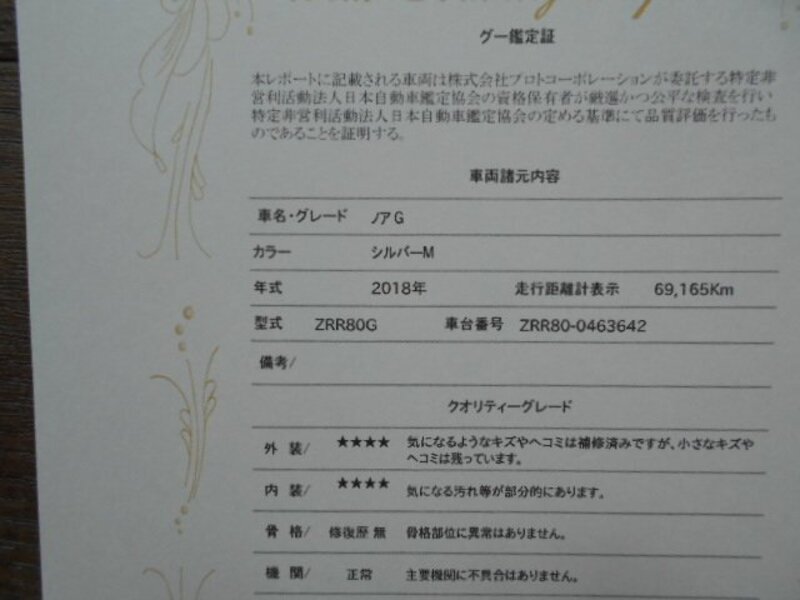 グー鑑定証
本レポートに記載される車両は株式会社プロトコーポレーションが委託する特定非
営利活動法人日本自動車鑑定協会の資格保有者が厳選かつ公平な検査を行い
特定非営利活動法人日本自動車鑑定協会の定める基準にて品質評価を行ったも
のであることを証明する。
車両諸元内容
車名・グレード ノア G
カラー シルバーM
年式 2018年 走行距離計表示 69,165Km
型式 ZRR80G 車台番号 ZRR80-0463642
備考/
クオリティーグレード
外 装/ ★★★★ 気になるようなキズやヘコミは補修済みですが、小さなキズや
ヘコミは残っています。
内 装/ ★★★★ 気になる汚れ等が部分的にあります。
骨 格/ 修復歴 無 骨格部位に異常はありません。
機 関/ 正常 主要機関に不具合はありません。